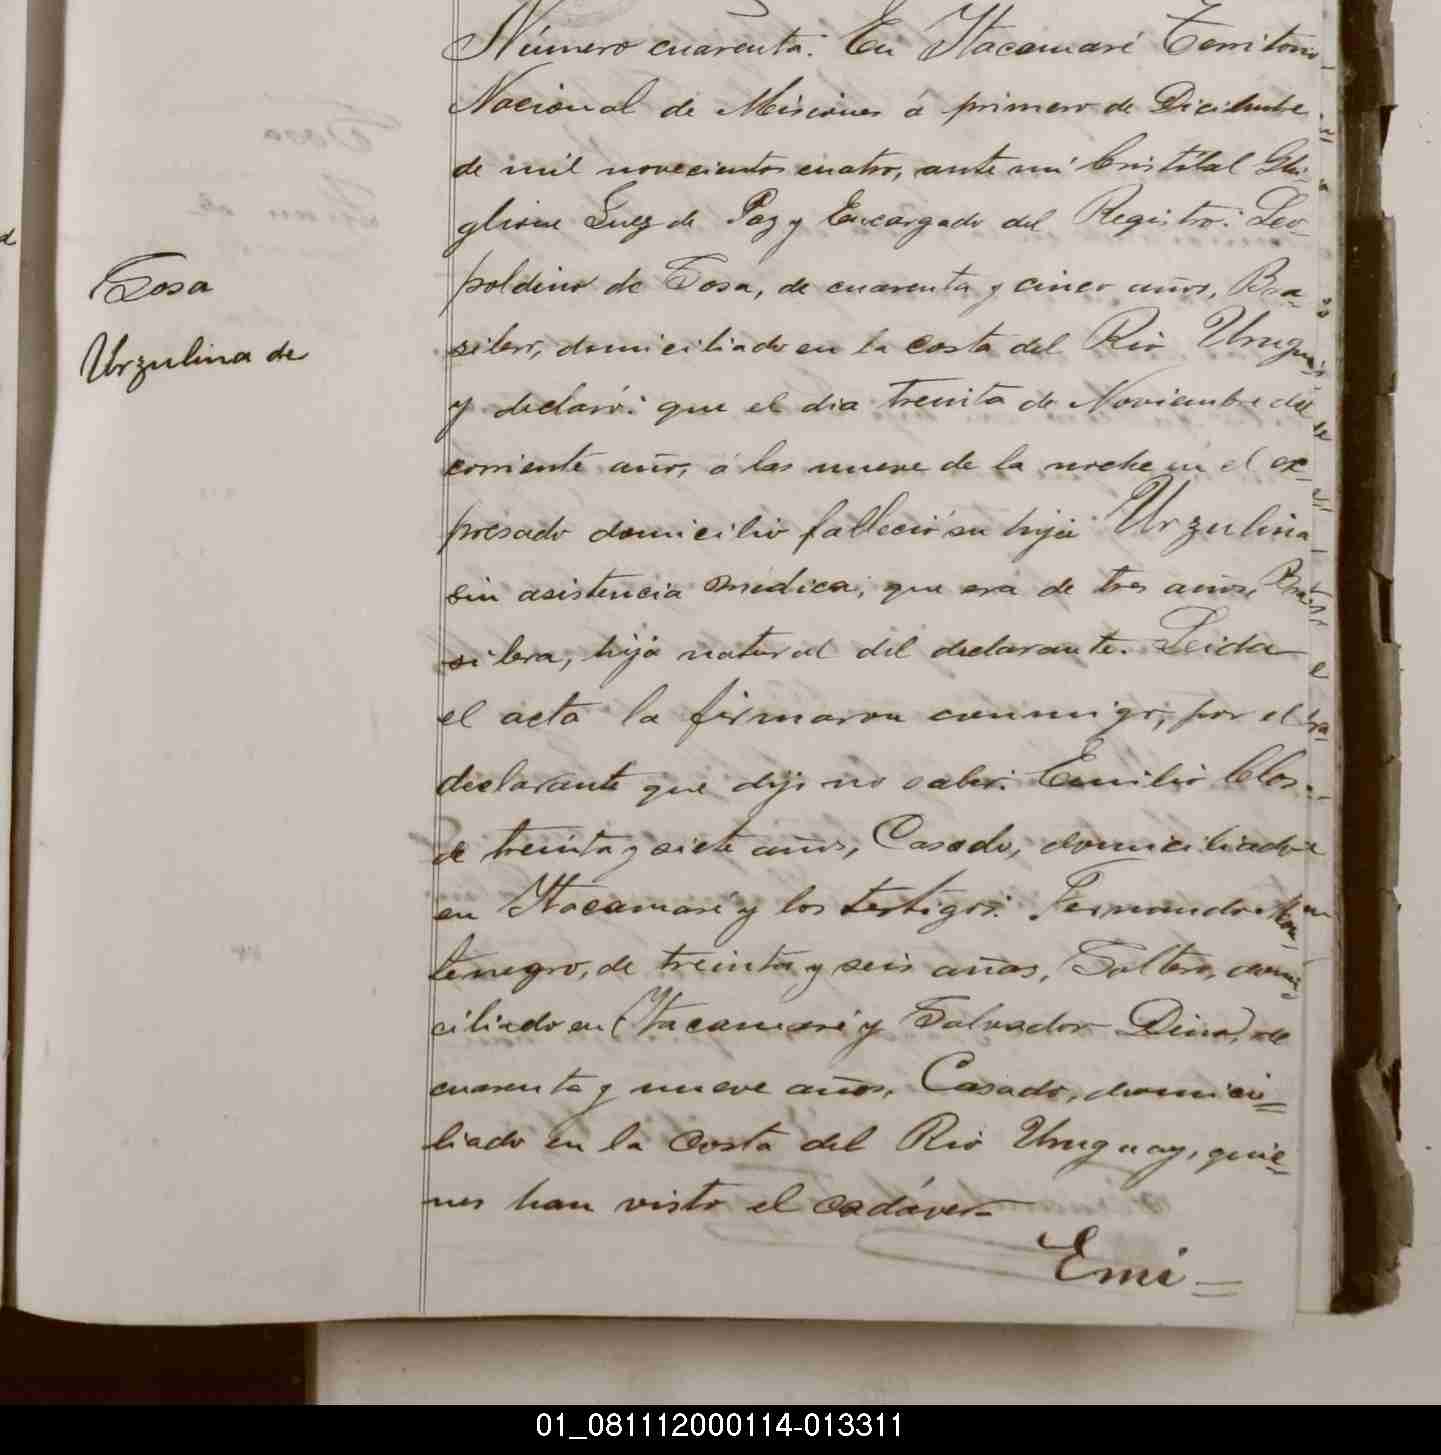 Tosa
Urzulina de
Número cuarenta: En Itacaruaré Territorio
Nacional de Misiones á primero de Diciembre
de mil novecientos cuatro, ante mí Cristobal Ghi-
glione Juez de Paz y Encargado del Registro: Leo-
poldino de Tosa, de cuarenta y cinco años, Bra-
silero, domiciliado en la costa del Rio Uruguay
y declaró: que el dia treinta de Noviembre del
corriente año, á las nueve de la noche en el ex-
presado domicilio falleció su hija Urzulina
sin asistencia médica, que era de tres años, Bra-
silera, hija natural del declarante. Leida
el acta la firmaron conmigo, por el
declarante que dijo no saber: Emilio Clos
de treinta y siete años, Casado, domiciliado
en Itacaruaré y los testigos: Fernando Mon-
tenegro, de treinta y seis años, Soltero, domi-
ciliado en Itacaruaré y Salvador de
cuarenta y nueve años, Casado, domici-
liado en la costa del Rio Uruguay, quie-
nes han visto el cadáver.
Emi-
01_081112000114-013311